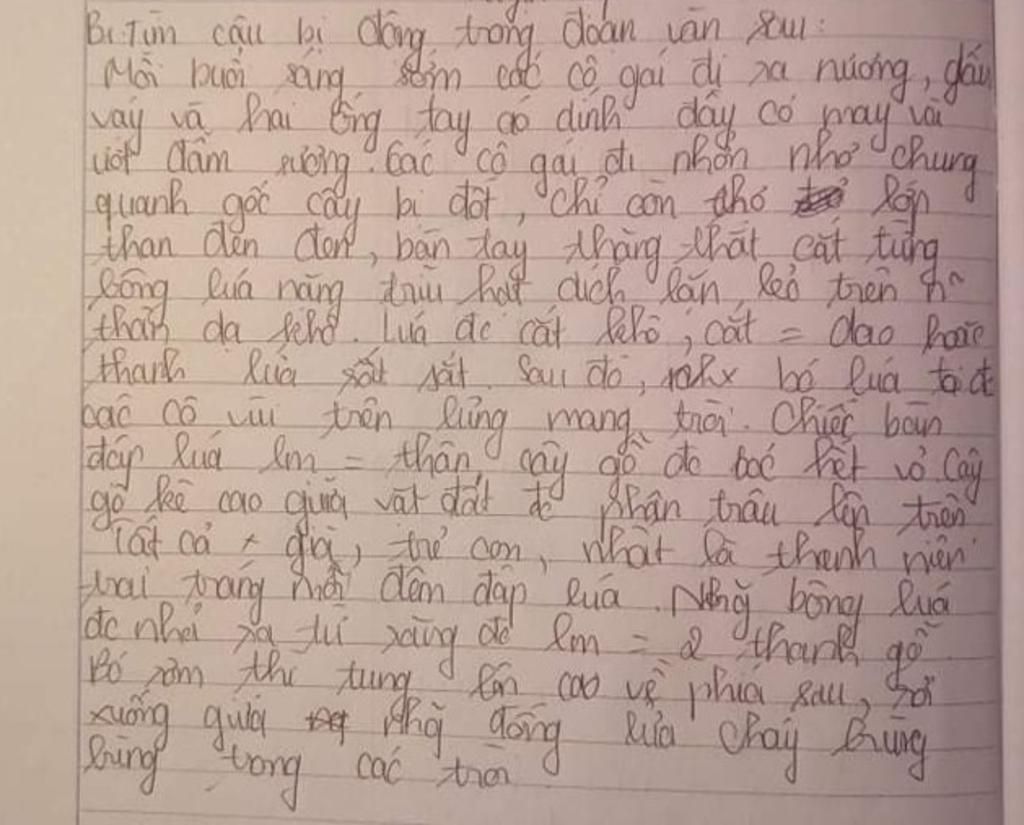 B: Tìm câu bị động trong đoạn văn sau:
Mỗi buổi sáng sớm các cô gái đi ra nương, gấu
váy và hai ống tay áo dính đầy cỏ may và
ướt đẫm sương. Các cô gái đi nhởn nhơ chung
quanh gốc cây bị đốt, chỉ còn lớp
than đen đen, bàn tay thăng thắt cắt từng
bông lúa nặng trĩu hạt
thân dạ khô. Lúa đc cắt khô, cắt = dao hoặc
thanh lứa sắt. Sau đó, bó lúa
các cô vùi trên lưng mang trời. Chiếc bàn
đập lúa lm = thân cây gỗ đc bóc hết vỏ. Cây
gỗ kê cao giữa vạt đất để phân trâu lên trên
Tất cả già, trẻ con, nhất là thanh niên
trai tráng mỗi đêm đập lúa. bông lúa
đc lm = 2 thanh gỗ
Bó rơm thì tung lên cao về phía sau, rơi
xuống giữa đống lửa cháy bừng
bừng trong các